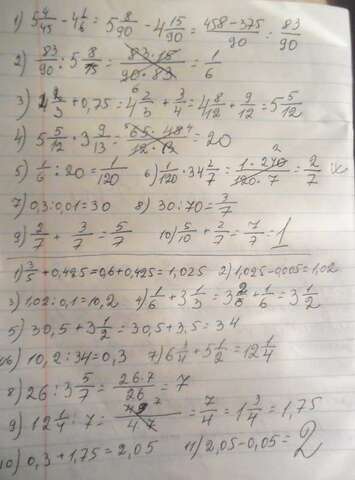 1) 5 4/45 - 4 1/6 = 5 8/90 - 4 15/90 = 458-375/90 = 83/90
2) 83/90 : 5 8/15 = 83·15/90·83 = 1/6
3) 4 2/3 + 0,75 = 4 2/3 + 3/4 = 4 8/12 + 9/12 = 5 5/12
4) 5 5/12 · 3 9/13 = 65·48/12·13 = 20
5) 1/6 : 20 = 1/120 6) 1/120 · 34 2/7 = 1·240/120·7 = 2/7
7) 0,3:0,01=30 8) 30:70=3/7
9) 2/7 + 3/7 = 5/7 10) 5/10 + 2/7 = 7/7 = 1
1) 3/5 + 0,425=0,6+0,425=1,025 2) 1,025-0,005=1,02
3) 1,02:0,1=10,2 4) 1/6 + 3 1/3 = 3 2/6 + 1/6 = 3 1/2
5) 30,5+3 1/2 = 30,5+3,5=34
6) 10,2:34=0,3 7) 6 3/4 + 5 1/2 = 12 1/4
8) 26 : 3 5/7 = 26·7/26 = 7
9) 12 1/4 : 7 = 49/4·7 = 7/4 = 1 3/4 = 1,75
10) 0,3+1,75=2,05 11) 2,05-0,05=2